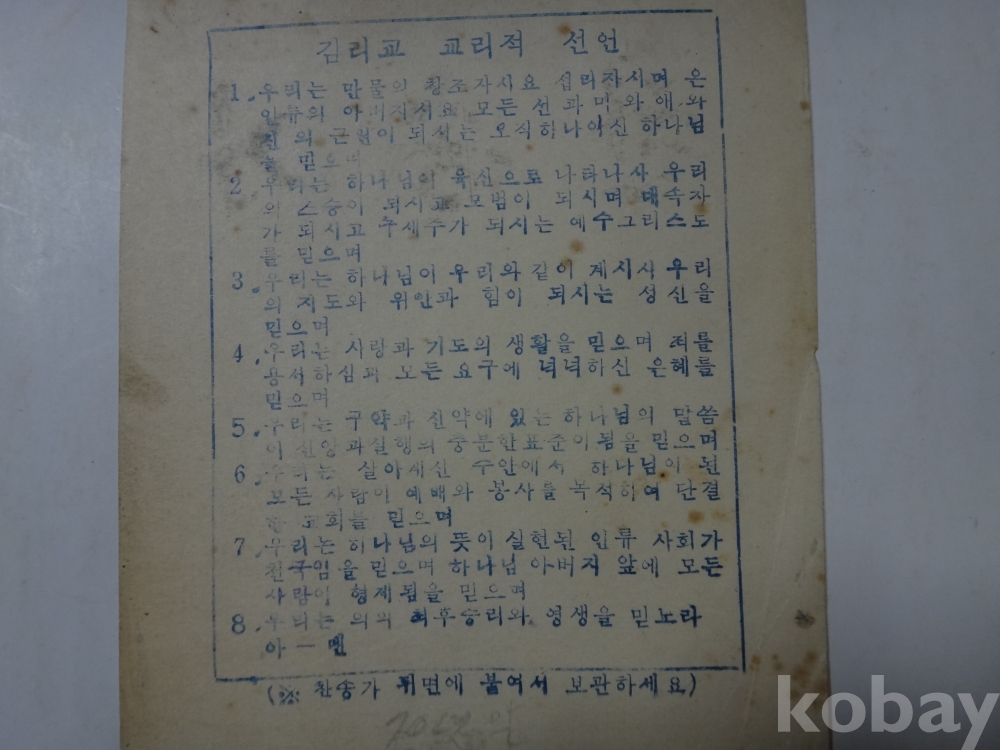 감리교 교리적 선언
1. 우리는 만물의 창조자시요 섭리자시며 온
인류의 아버지시요 모든 선과 미와 애와
진의 근원이 되시는 오직하나이신 하나님
을 믿으며
2. 우리는 하나님이 육신으로 나타나사 우리
의 스승이 되시고 모범이 되시며 대속자
가 되시고 구세주가 되시는 예수그리스도
를 믿으며
3. 우리는 하나님이 우리와 같이 계시사 우리
의 지도와 위안과 힘이 되시는 성신을
믿으며
4. 우리는 사랑과 기도의 생활을 믿으며 죄를
용서하심과 모든 요구에 넉넉하신 은혜를
믿으며
5. 우리는 구약과 신약에 있는 하나님의 말씀
이 신앙과실행의 충분한표준이됨을 믿으며
6. 우리는 살아계신 주안에서 하나님이 된
모든 사람이 예배와 봉사를 목적하여 단결
한 교회를 믿으며
7. 우리는 하나님의 뜻이 실현된 인류 사회가
천국임을 믿으며 하나님 아버지 앞에 모든
사람이 형제됨을 믿으며
8. 우리는 의의 최후승리와 영생을 믿노라
아-멘
(※ 찬송가 뒤면에 붙여서 보관하세요)
kobay